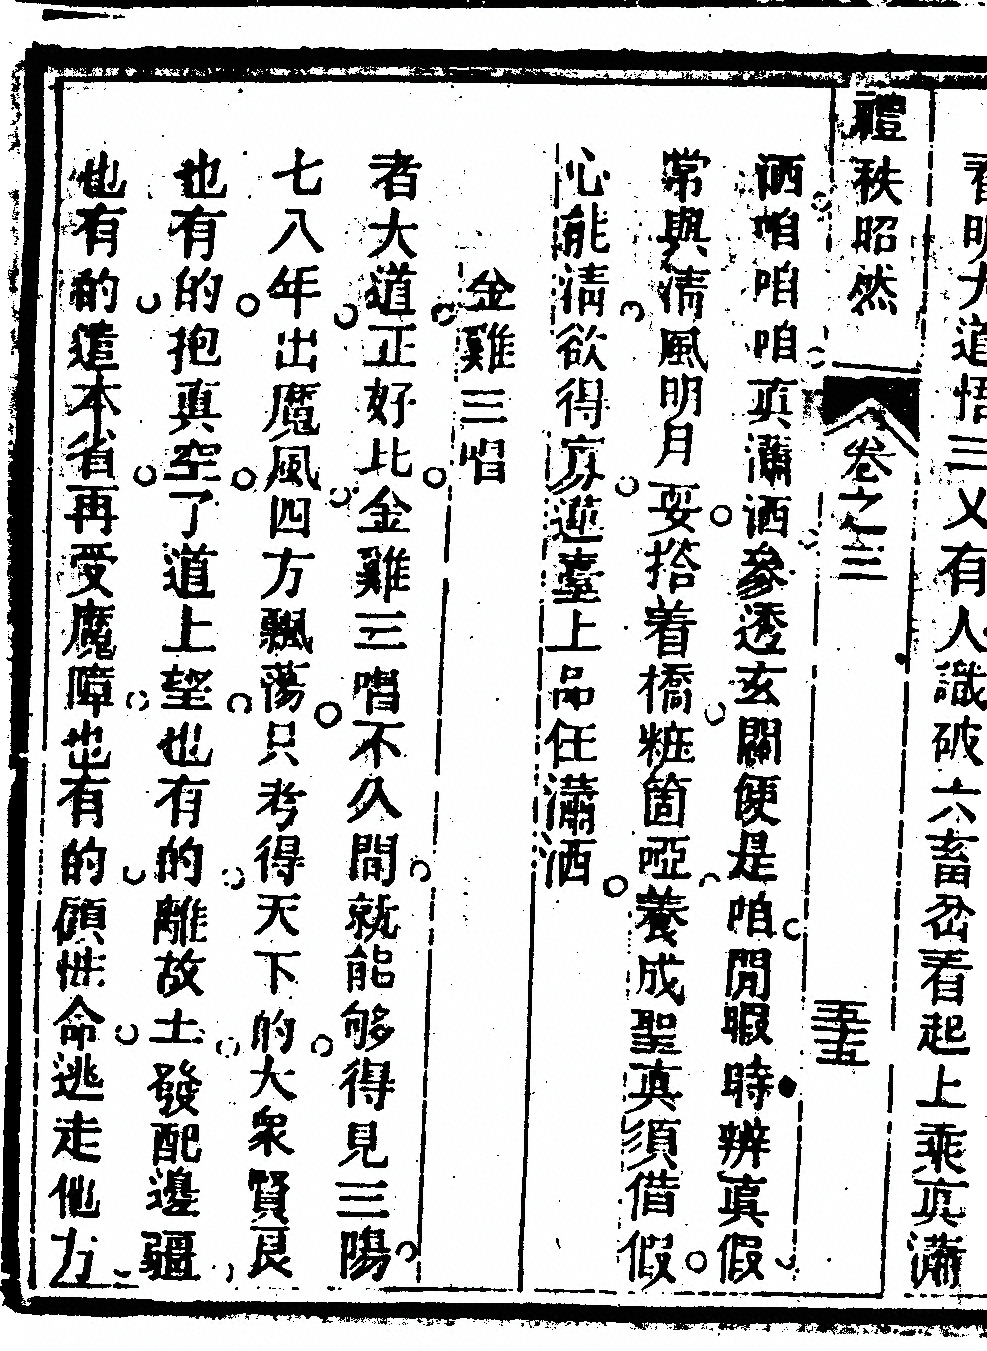 看明大道悟三乂有人識破六畜㕻看起上乘真瀟
禮秩昭然 卷之三 五十五
洒咱咱咱真瀟洒參透玄關便是咱閒暇時辨真假
常與清風明月耍拾着橋粧箇啞養成聖真須借假
心能清欲得穷莲臺上品任瀟洒
金雞三唱
者大道正好比金雞三唱不久間就能够得見三陽
七八年出魔風四方飄蕩只考得天下的大衆賢良
也有的抱真空了道上望也有的離故土發配邊疆
也有的遣本省再受魔障也有的傾性命逃走他方